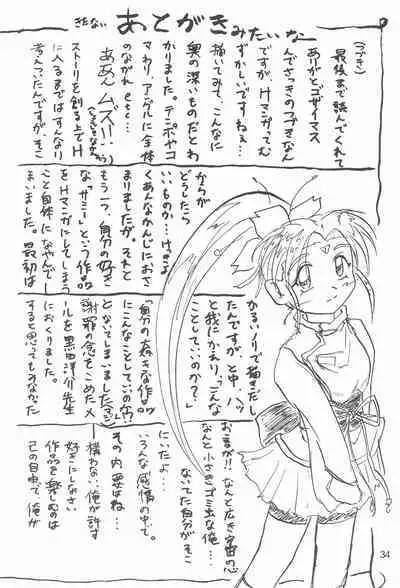 きたない あとがきみたいなー
(つづき)
最後まで読んでくれて
ありがとゴザイマス
んでさっきのつづきなん
ですが、Hマンガってム
ずかしいですねぇ…
描いてみて、こんなに
奥の深いものだとわ
かりました。テンポやコ
マわり、アングルに全体
のながれ etc…
ああん ムズー!!
ストーリを創る上でH
に入るまではすんなり
考えついたんですが、そこ
からが
どうしたら
いいものか…けっきょ
くあんなかんじにおさ
まりましたが。それと
もう一つ、自分の好き
な「サミー」という作品
をHマンガにしてしまう
こと自体になやんでし
まいました。最初は
かるいノリで描きだし
たんですが、と中、ハッ
と我にかえり、「こんな
ことしていいのか?」
「自分の大好きな作品
にこんなことしていいのか!?」
とないてしまいました(マジ)
謝罪の念をこめたメ
ールを黒田洋介先生
におくりました。
すると思ってもみなかった
おコトバが!!なんと広き宇宙の心
なんと小さきゴミ虫な俺…
ないてた自分がそこ
にいたよ…
いろんな感情の中で。
その内容はね…
構わない、俺が許す
好きにしなさい
作品を楽しむのは
己の自由で、俺が
34